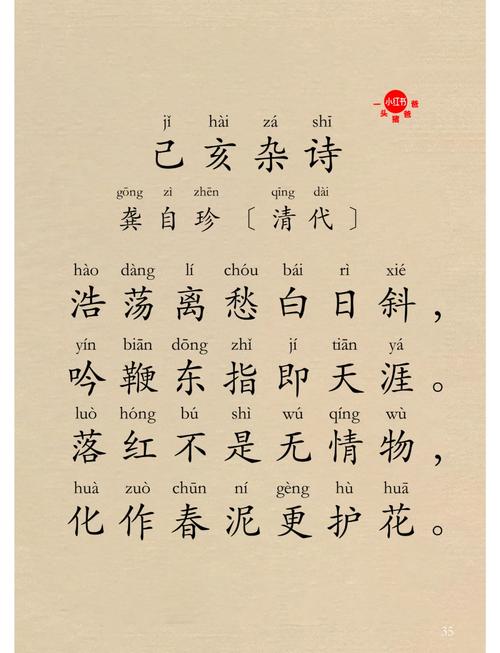 小红书
一头猪爸爸
jǐ hài zá shī
己亥杂诗
gōng zì zhēn qīng dài
龚自珍〔清代〕
hào dàng lí chóu bái rì xié
浩荡离愁白日斜，
yín biān dōng zhǐ jí tiān yá
吟鞭东指即天涯。
luò hóng bú shì wú qíng wù
落红不是无情物，
huà zuò chūn ní gèng hù huā
化作春泥更护花。
35